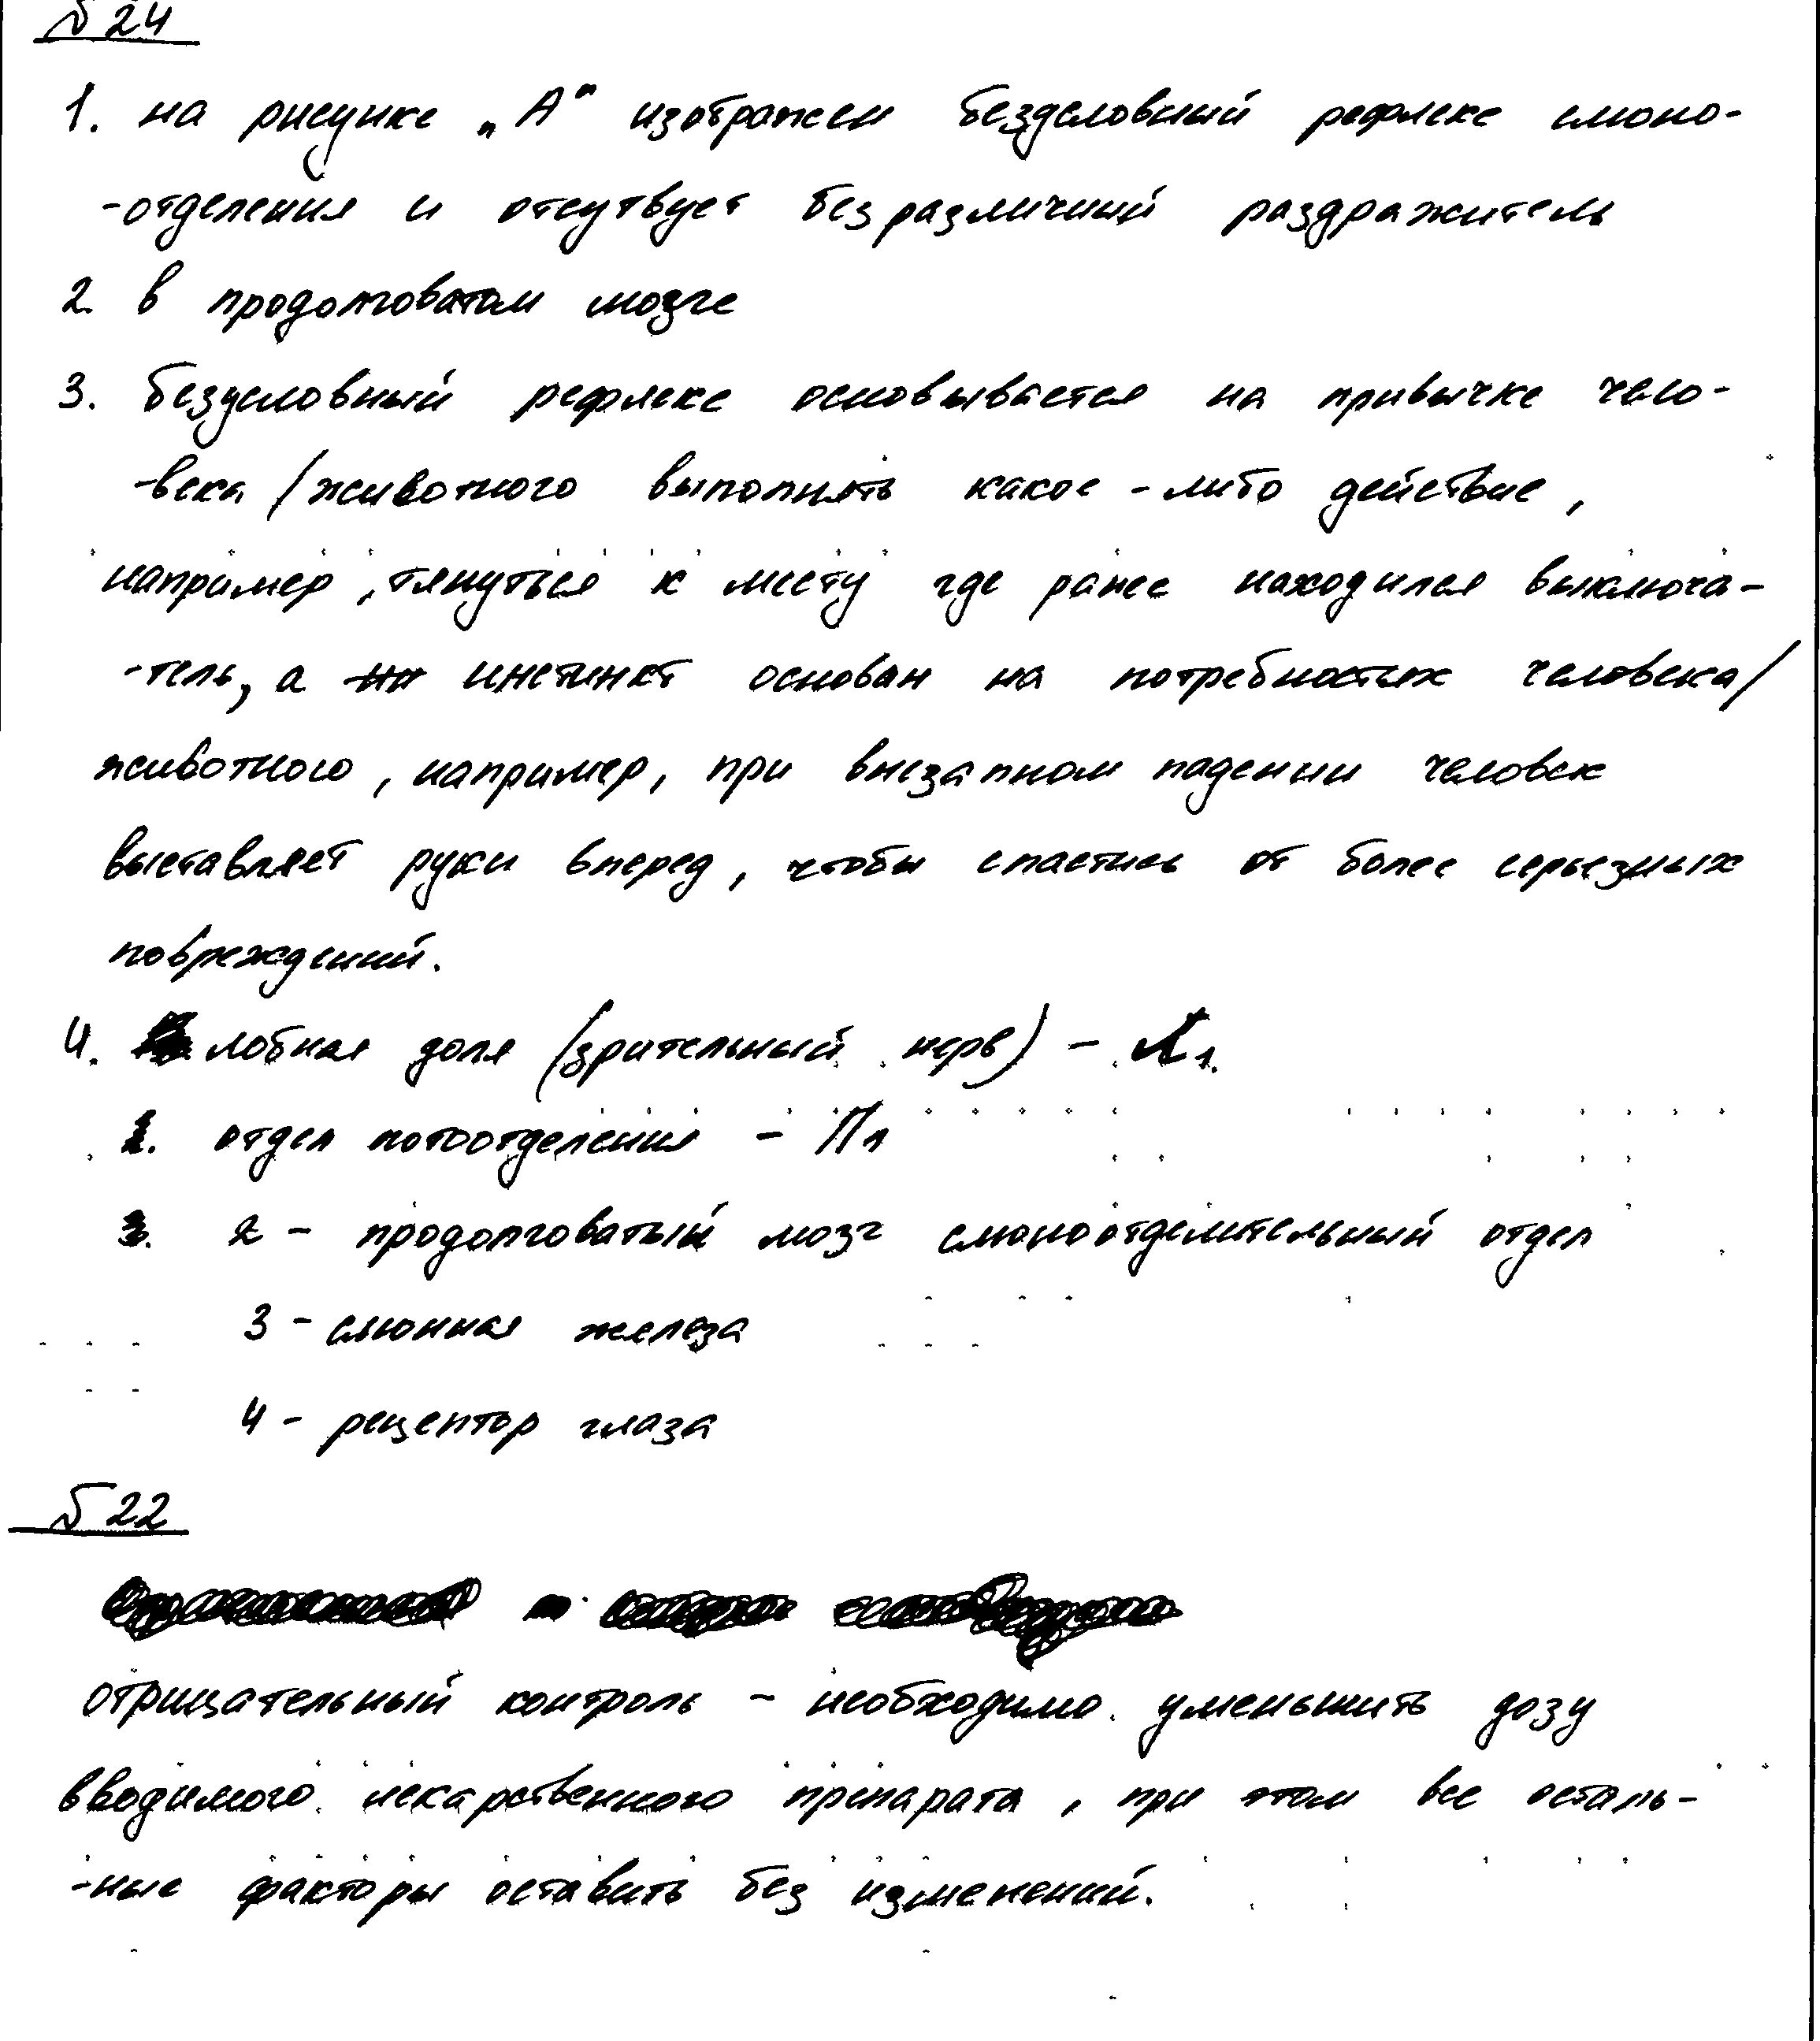 № 24
1. на рисунке „А" изображен бездсловный рефлекс слюно-
-отделения и отсутвует безразличный раздражитель
2. в продолговатом мозге
3. безусловный рефлекс основывается на привычке чело-
-века /животного выполнять какое-либо действие,
например, тянуться к месту где ранее находился выключа-
-тель, а инстинкт основан на потребностях человека/
животного, например, при внезапном падении человек
выставляет руки вперед, чтобы спастись от более серьезных
повреждений.
4. лобная доля (зрительный нерв) – 1.
2. отдел потоотделения – П1
3. 2 – продолговатый мозг слюноотделительный отдел
3 – слюнная железа
4 – рецептор глаза
№ 22
отрицательный контроль – необходимо уменьшить дозу
вводимого лекарственного препарата, при этом все осталь-
-ные факторы оставить без изменений.